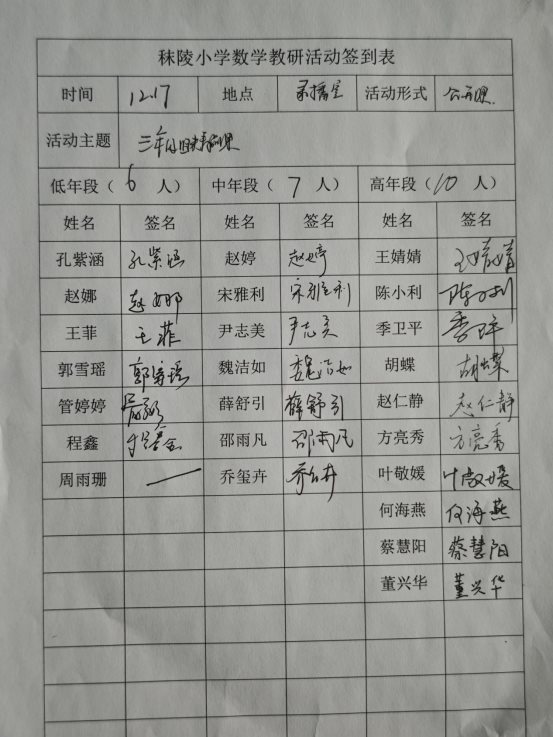 秣陵小学数学教研活动签到表
时间 12.17 地点 录播室 活动形式 公开课
活动主题 三年
低年段（6 人） 中年段（7 人） 高年段（10 人）
姓名 签名 姓名 签名 姓名 签名
孔紫涵 孔紫涵 赵婷 赵婷 王婧婧 王婧婧
赵娜 赵娜 宋雅利 宋雅利 陈小利 陈小利
王菲 王菲 尹志美 尹志美 季卫平 季卫平
郭雪瑶 郭雪瑶 魏洁如 魏洁如 胡蝶 胡蝶
管婷婷 薛舒引 薛舒引 赵仁静 赵仁静
程鑫 邵雨凡 邵雨凡 方亮秀 方亮秀
周雨珊 — 乔玺卉 乔玺卉 叶敬媛 叶敬媛
何海燕 何海燕
蔡慧阳 蔡慧阳
董兴华 董兴华